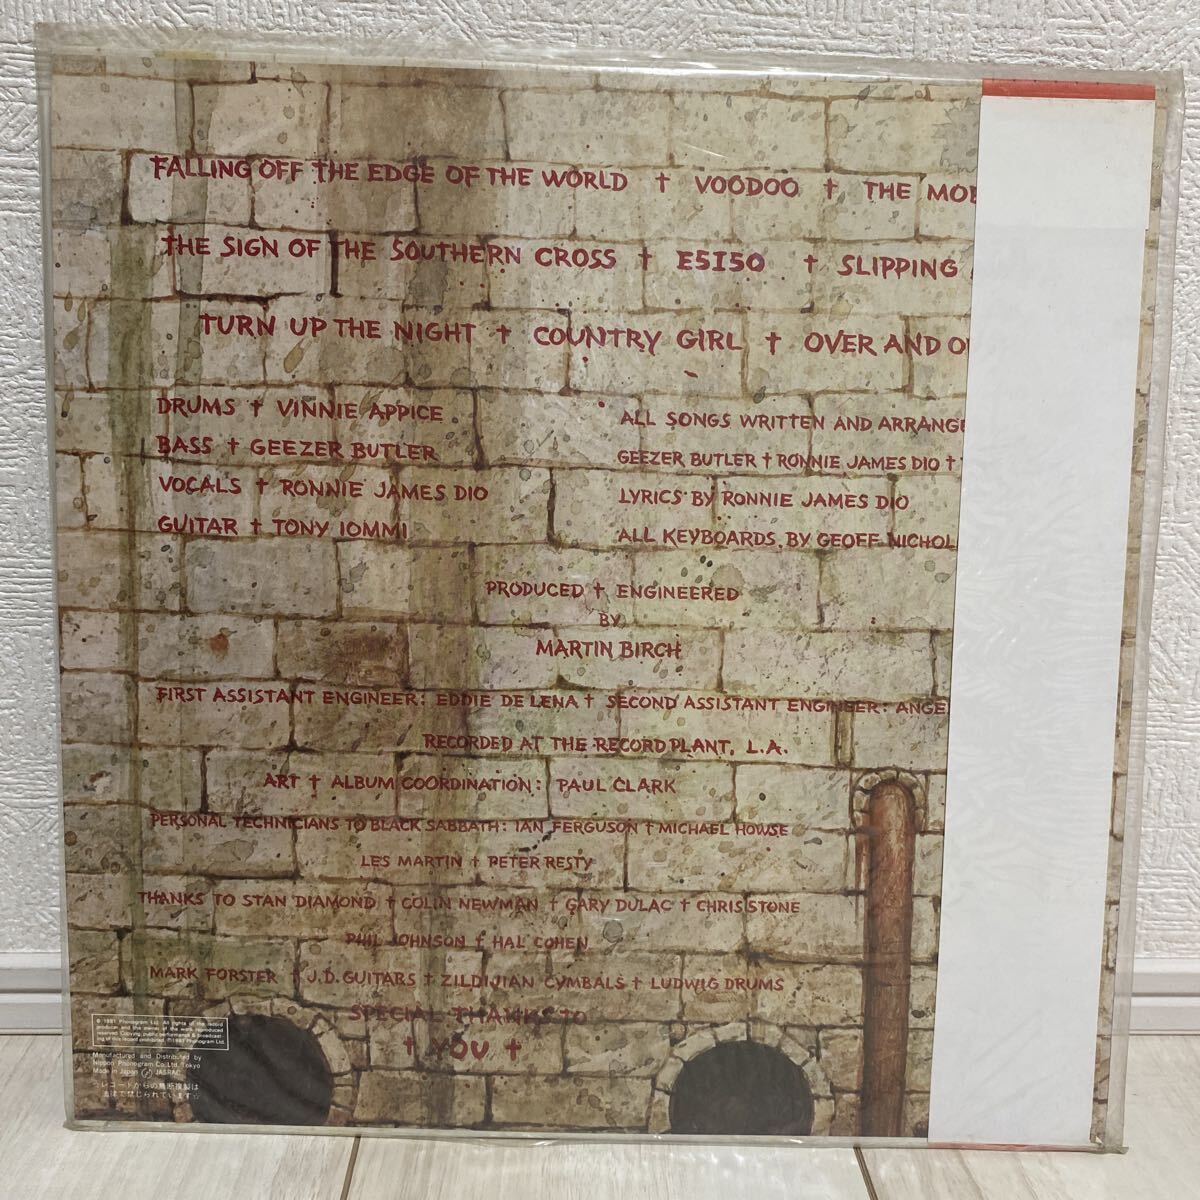 FALLING OFF THE EDGE OF THE WORLD † VOODOO † THE MOB
THE SIGN OF THE SOUTHERN CROSS † E5150 † SLIPPING
TURN UP THE NIGHT † COUNTRY GIRL † OVER AND O
DRUMS † VINNIE APPICE
BASS † GEEZER BUTLER
VOCALS † RONNIE JAMES DIO
GUITAR † TONY IOMMI
ALL SONGS WRITTEN AND ARRANGE
GEEZER BUTLER † RONNIE JAMES DIO †
LYRICS BY RONNIE JAMES DIO
ALL KEYBOARDS BY GEOFF NICHOL
PRODUCED † ENGINEERED
BY
MARTIN BIRCH
FIRST ASSISTANT ENGINEER: EDDIE DE LENA † SECOND ASSISTANT ENGINEER: ANGE
RECORDED AT THE RECORD PLANT, L.A.
ART † ALBUM COORDINATION: PAUL CLARK
PERSONAL TECHNICIANS TO BLACK SABBATH: IAN FERGUSON † MICHAEL HOWSE
LES MARTIN † PETER RESTY
THANKS TO STAN DIAMOND † COLIN NEWMAN † GARY DULAC † CHRIS STONE
PHIL JOHNSON † HAL COHEN
MARK FORSTER † J.D. GUITARS † ZILDIJIAN CYMBALS † LUDWIG DRUMS
SPECIAL THANKS TO
† YOU †
℗ 1981 Phonogram Ltd. All rights of the record
producer and the owner of the work reproduced
reserved. Copying, public performance & broadcast-
ing of this record prohibited. ©1981 Phonogram Ltd.
Manufactured and Distributed by
Nippon Phonogram Co., Ltd. Tokyo
Made in Japan JASRAC
☆レコードからの無断複製は
法律で禁じられています☆